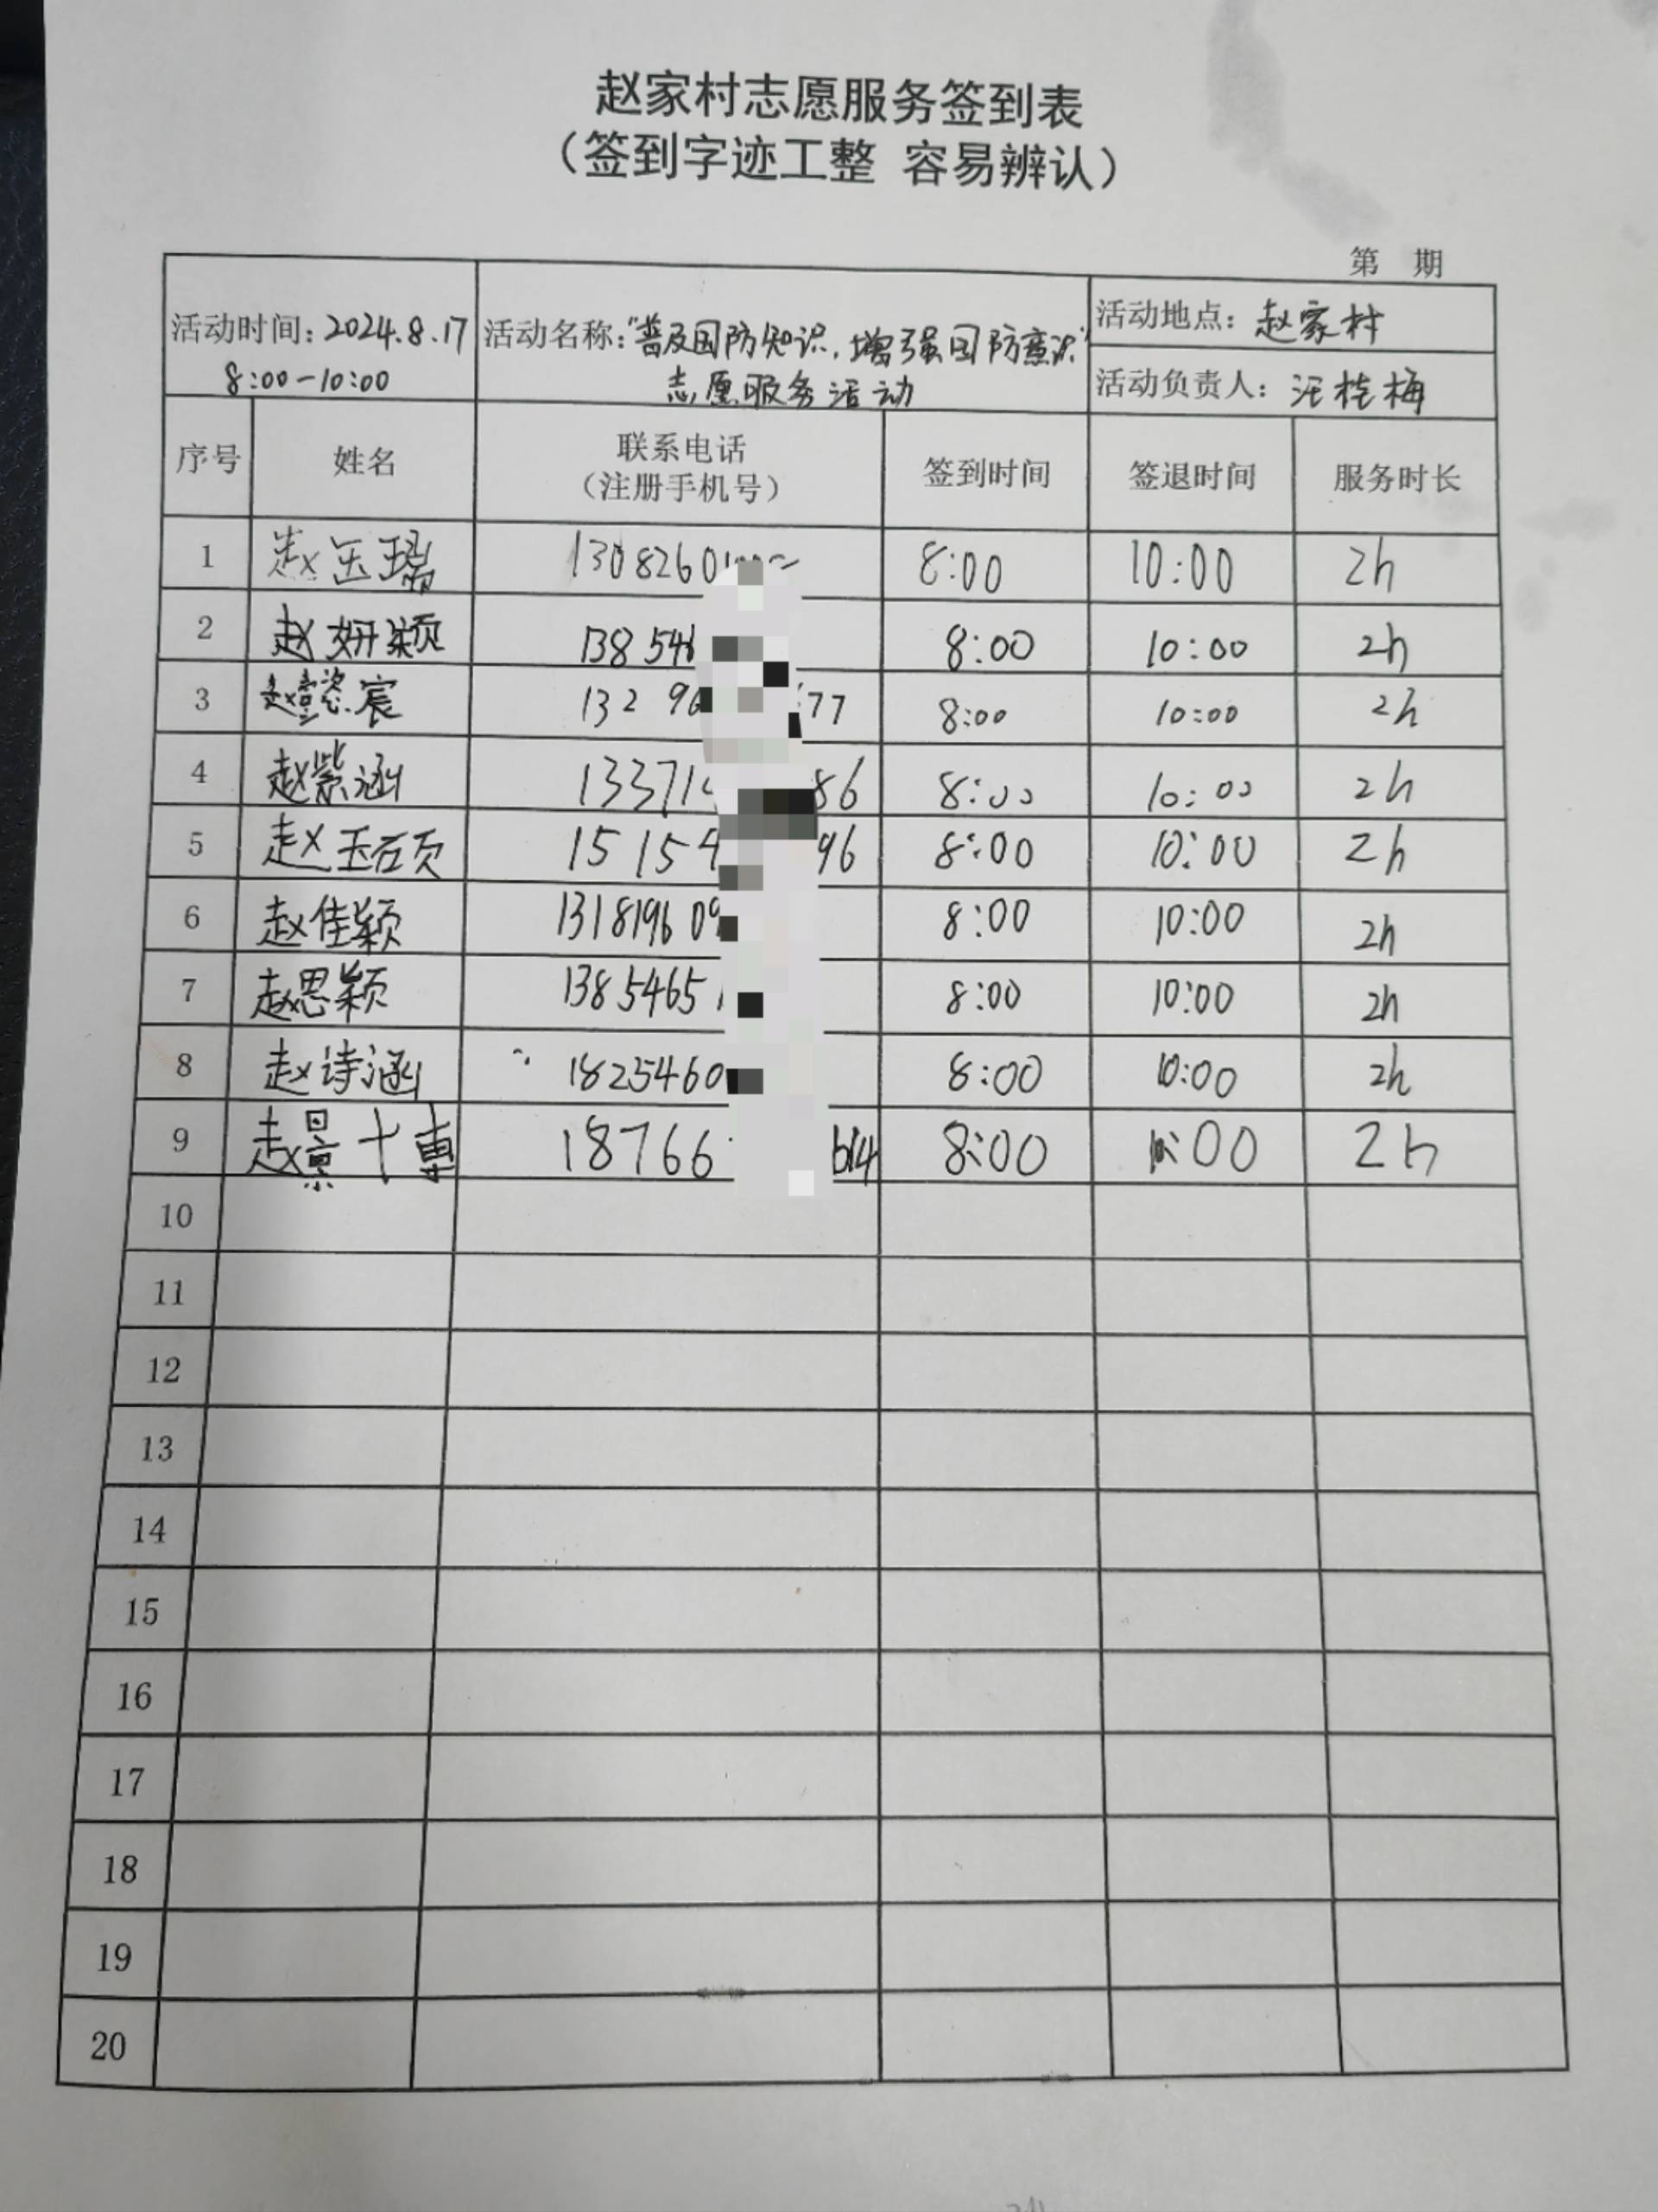 赵家村志愿服务签到表
（签到字迹工整 容易辨认）
第 期
活动时间：2024.8.17
8:00-10:00
活动名称："普及国防知识，增强国防意识"
志愿服务活动
活动地点：赵家村
活动负责人：汪桂梅
序号 姓名 联系电话（注册手机号） 签到时间 签退时间 服务时长
1 赵玉瑞 1308260 8:00 10:00 2h
2 赵妍颖 138546 8:00 10:00 2h
3 赵懿宸 132 96 77 8:00 10:00 2h
4 赵紫涵 13371 86 8:00 10:00 2h
5 赵玉 15154 96 8:00 10:00 2h
6 赵佳颖 131819609 8:00 10:00 2h
7 赵思颖 1385465 8:00 10:00 2h
8 赵诗涵 1825460 8:00 10:00 2h
9 赵景博 18766 614 8:00 10:00 2h
10
11
12
13
14
15
16
17
18
19
20